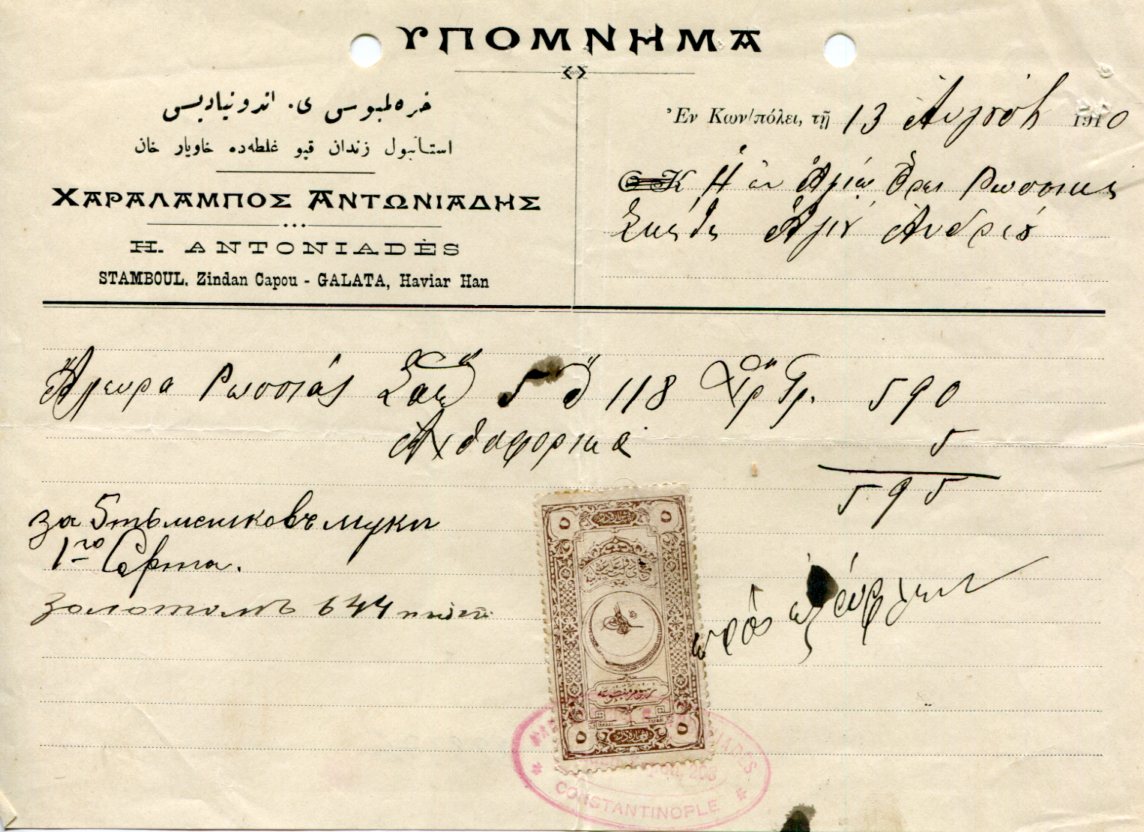 ΥΠΟΜΝΗΜΑ
خره لمبوسی ی. اندونیادیسی
استانبول زندان قپو غلطه ده خاویار خان
ΧΑΡΑΛΑΜΠΟΣ ΑΝΤΩΝΙΑΔΗΣ
H. ANTONIADÈS
STAMBOUL, Zindan Capou - GALATA, Haviar Han
Ἐν Κων/πόλει, τῇ 13 Αὐγούστ 1910
Ἁγίῳ Ὄρει Ρωσσικὴ
Σκήτη Ἁγίου Ἀνδρέου
Ἄλευρα Ρωσσίας Σακ 5 118 Γρ. 590
5
595
за 5ть мешковъ муки
1го Сорта.
золотомъ 644
CONSTANTINOPLE